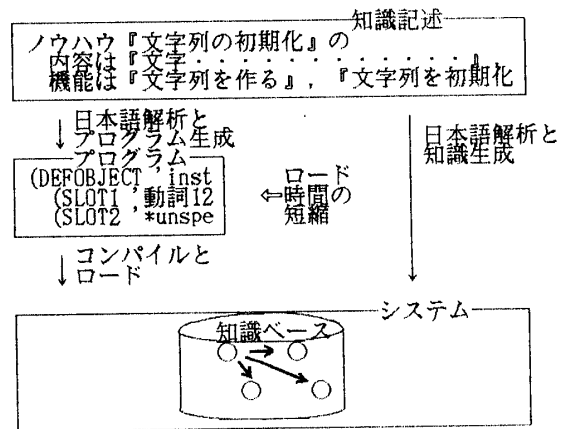 知識記述
ノウハウ『文字列の初期化』の
内容は『文字・・・・・・・・・・・・』,
機能は『文字列を作る』,『文字列を初期化
日本語解析と
プログラム生成
プログラム
(DEFOBJECT 'inst
(SLOT1 '動詞12
(SLOT2 '*unspe
ロード
⇦時間の
短縮
日本語解析と
知識生成
コンパイルと
ロード
システム
知識ベース